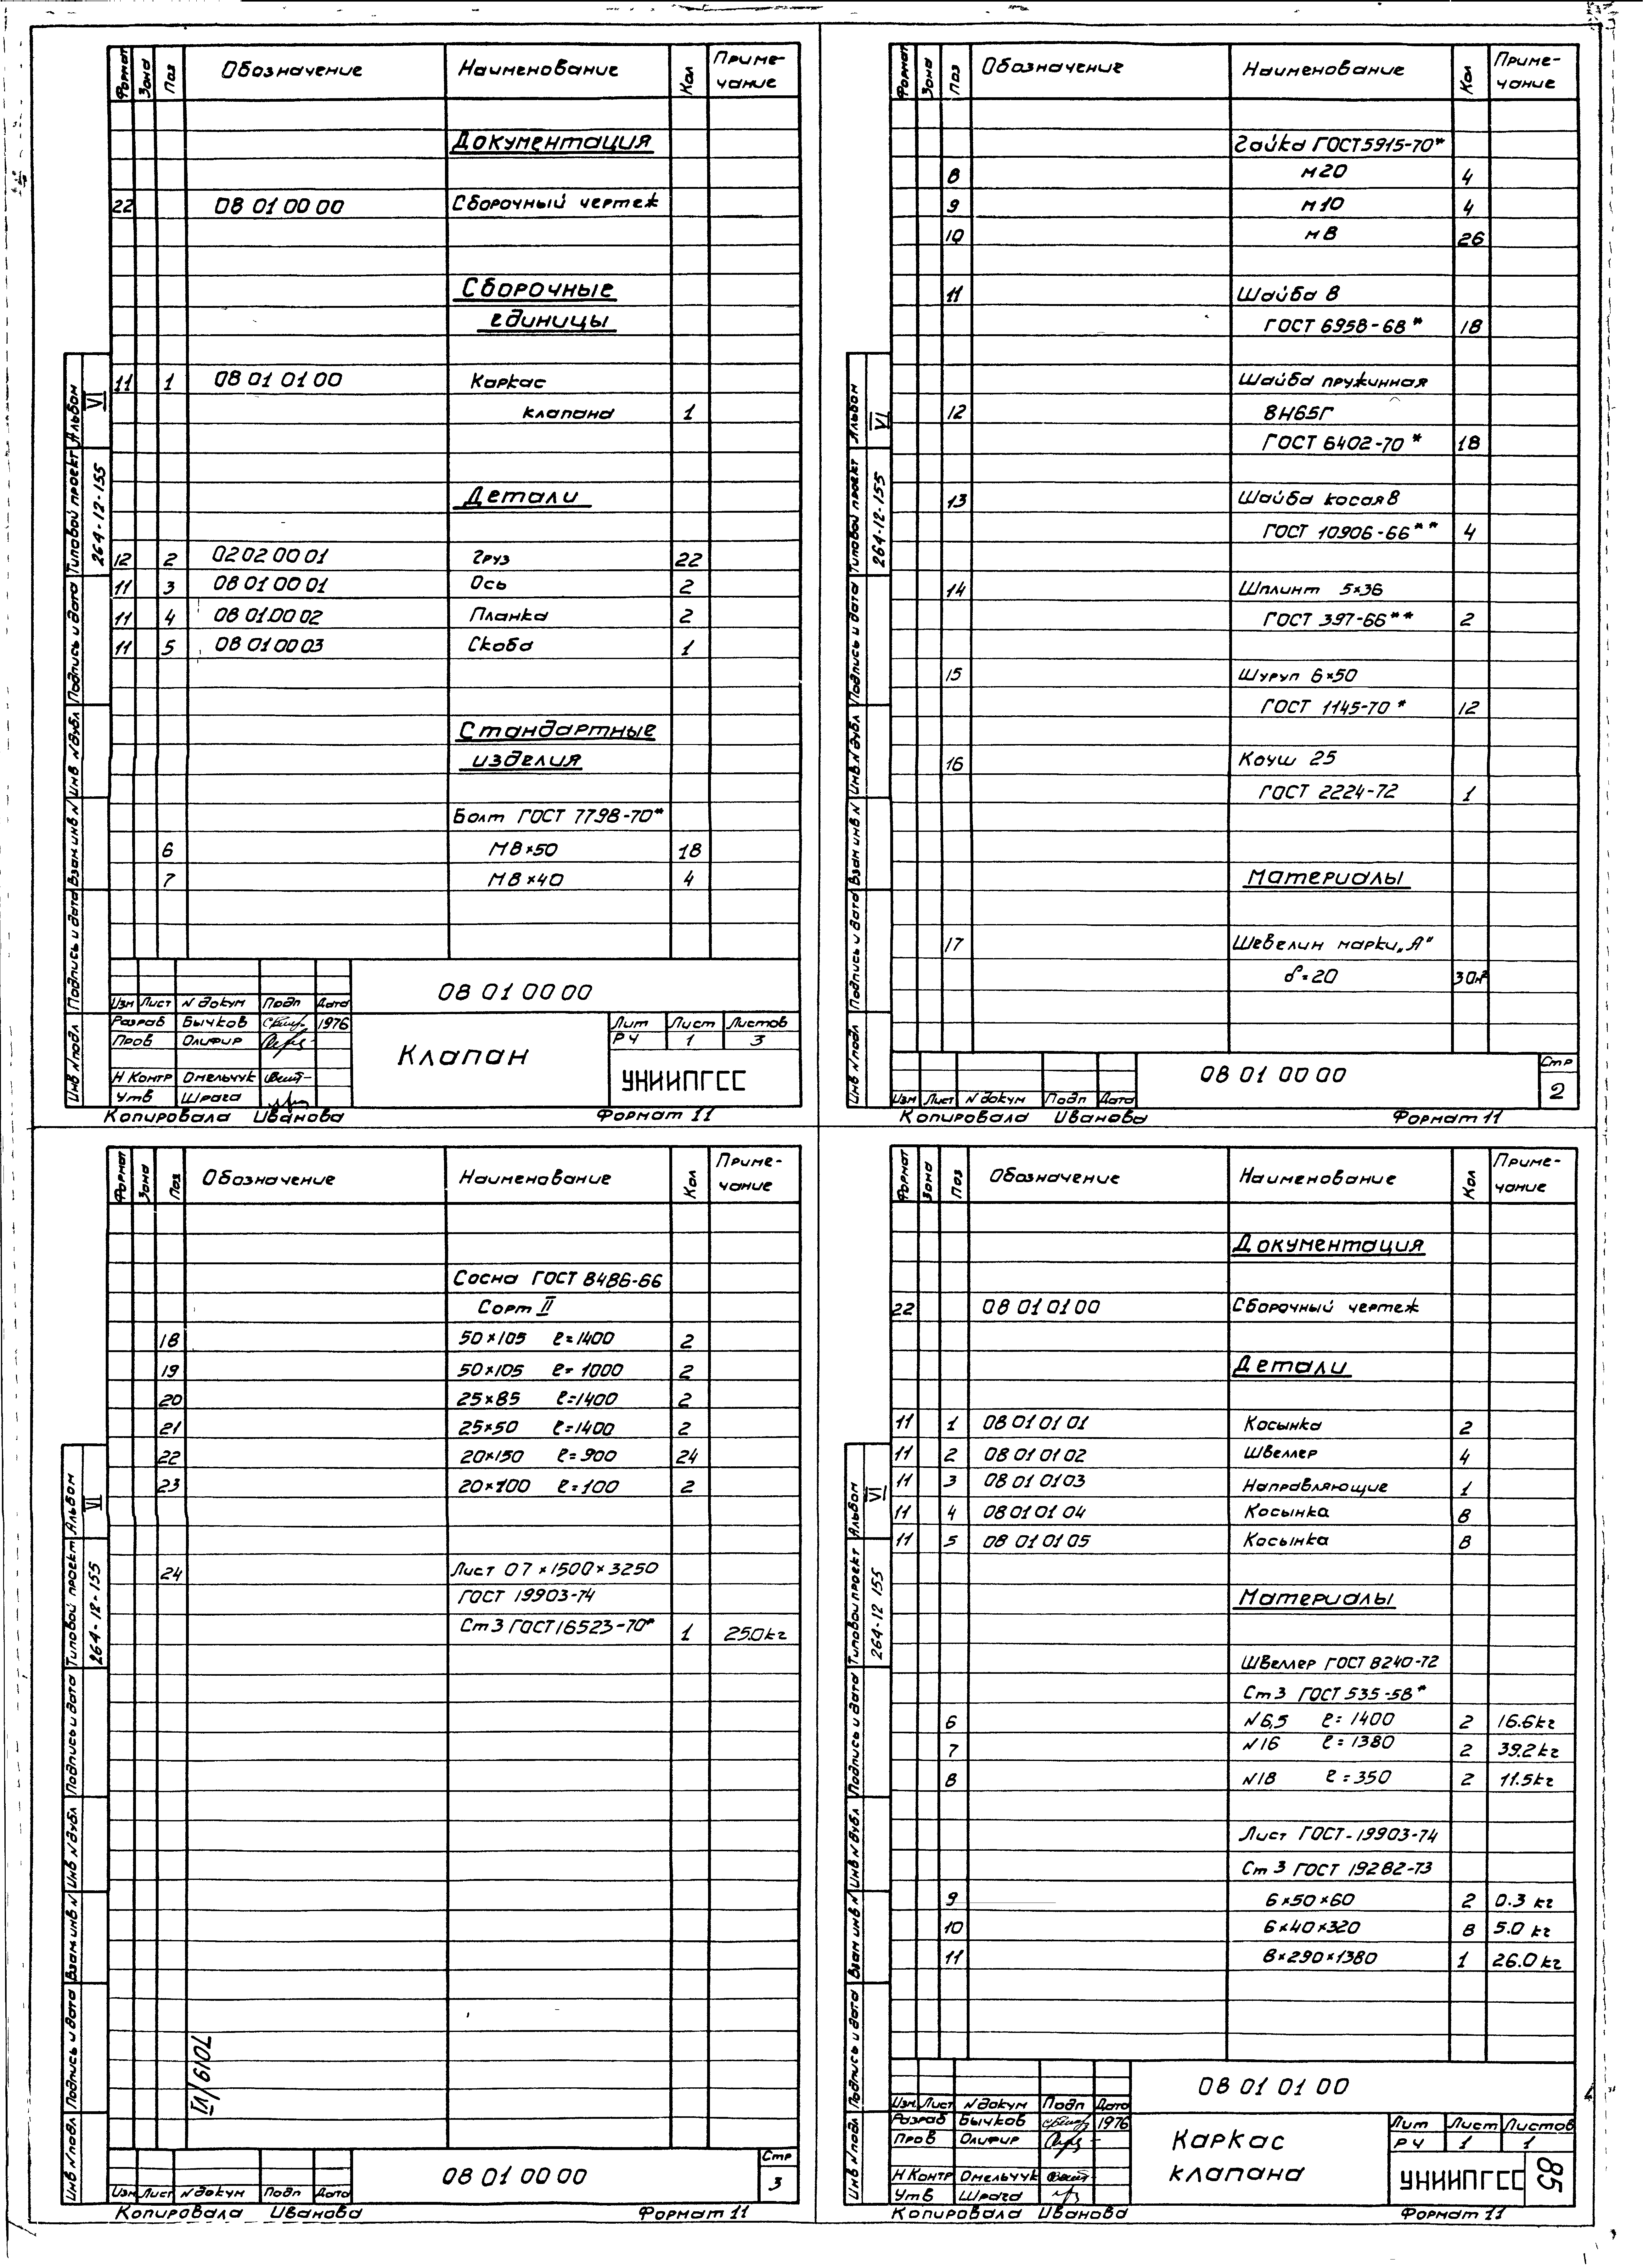 Формат Зона Поз Обозначение Наименование Кол Приме-
чание
Документация
22 08 01 00 00 Сборочный чертеж
Сборочные
единицы
11 1 08 01 01 00 Каркас
клапана 1
Детали
12 2 02 02 00 01 Груз 22
11 3 08 01 00 01 Ось 2
11 4 08 01.00 02 Планка 2
11 5 08 01 00 03 Скоба 1
Стандартные
изделия
Болт ГОСТ 7798-70*
6 М8×50 18
7 М8×40 4
08 01 00 00
Изм Лист N докум Подп Дата
Разраб Бычков 1976
Пров Олифир
Н Контр Омельчук
Утв Шрага
Клапан
Лит Лист Листов
РЧ 1 3
УНИИПГСС
Копировала Иванова Формат 11
Альбом VI
Типовой проект 264-12-155
Подпись и дата
Инв N дубл
Взам инв N
Подпись и дата
Инв N подл
Формат Зона Поз Обозначение Наименование Кол Приме-
чание
Гайка ГОСТ 5915-70*
8 м20 4
9 м10 4
10 м8 26
11 Шайба 8
ГОСТ 6958-68* 18
Шайба пружинная
12 8Н65Г
ГОСТ 6402-70* 18
13 Шайба косая 8
ГОСТ 10906-66** 4
14 Шплинт 5×36
ГОСТ 397-66** 2
15 Шуруп 6×50
ГОСТ 1145-70* 12
16 Коуш 25
ГОСТ 2224-72 1
Материалы
17 Шевелин марки „А"
δ=20 3.0м²
08 01 00 00
Стр
2
Изм Лист N докум Подп Дата
Копировала Иванова Формат 11
Альбом VI
Типовой проект 264-12-155
Подпись и дата
Инв N дубл
Взам инв N
Подпись и дата
Инв N подл
Формат Зона Поз Обозначение Наименование Кол Приме-
чание
Сосна ГОСТ 8486-66
Сорт II
18 50×105 ℓ=1400 2
19 50×105 ℓ=1000 2
20 25×85 ℓ=1400 2
21 25×50 ℓ=1400 2
22 20×150 ℓ=900 24
23 20×100 ℓ=100 2
24 Лист 0 7×1500×3250
ГОСТ 19903-74
Ст 3 ГОСТ 16523-70* 1 25.0кг
7019/VI
08 01 00 00
Стр
3
Изм Лист N докум Подп Дата
Копировала Иванова Формат 11
Альбом VI
Типовой проект 264-12-155
Подпись и дата
Инв N дубл
Взам инв N
Подпись и дата
Инв N подл
Формат Зона Поз Обозначение Наименование Кол Приме-
чание
Документация
22 08 01 01 00 Сборочный чертеж
Детали
11 1 08 01 01 01 Косынка 2
11 2 08 01 01 02 Швеллер 4
11 3 08 01 01 03 Направляющие 1
11 4 08 01 01 04 Косынка 8
11 5 08 01 01 05 Косынка 8
Материалы
Швеллер ГОСТ 8240-72
Ст 3 ГОСТ 535-58*
6 N6,5 ℓ=1400 2 16.6кг
7 N16 ℓ=1380 2 39.2кг
8 N18 ℓ=350 2 11.5кг
Лист ГОСТ-19903-74
Ст 3 ГОСТ 19282-73
9 6×50×60 2 0.3 кг
10 6×40×320 8 5.0 кг
11 8×290×1380 1 26.0 кг
08 01 01 00
Изм Лист N докум Подп Дата
Разраб Бычков 1976
Пров Олифир
Н Контр Омельчук
Утв Шрага
Каркас
клапана
Лит Лист Листов
РЧ 1 1
УНИИПГСС
85
Копировала Иванова Формат 11
Альбом VI
Типовой проект 264-12 155
Подпись и дата
Инв N дубл
Взам инв N
Подпись и дата
Инв N подл